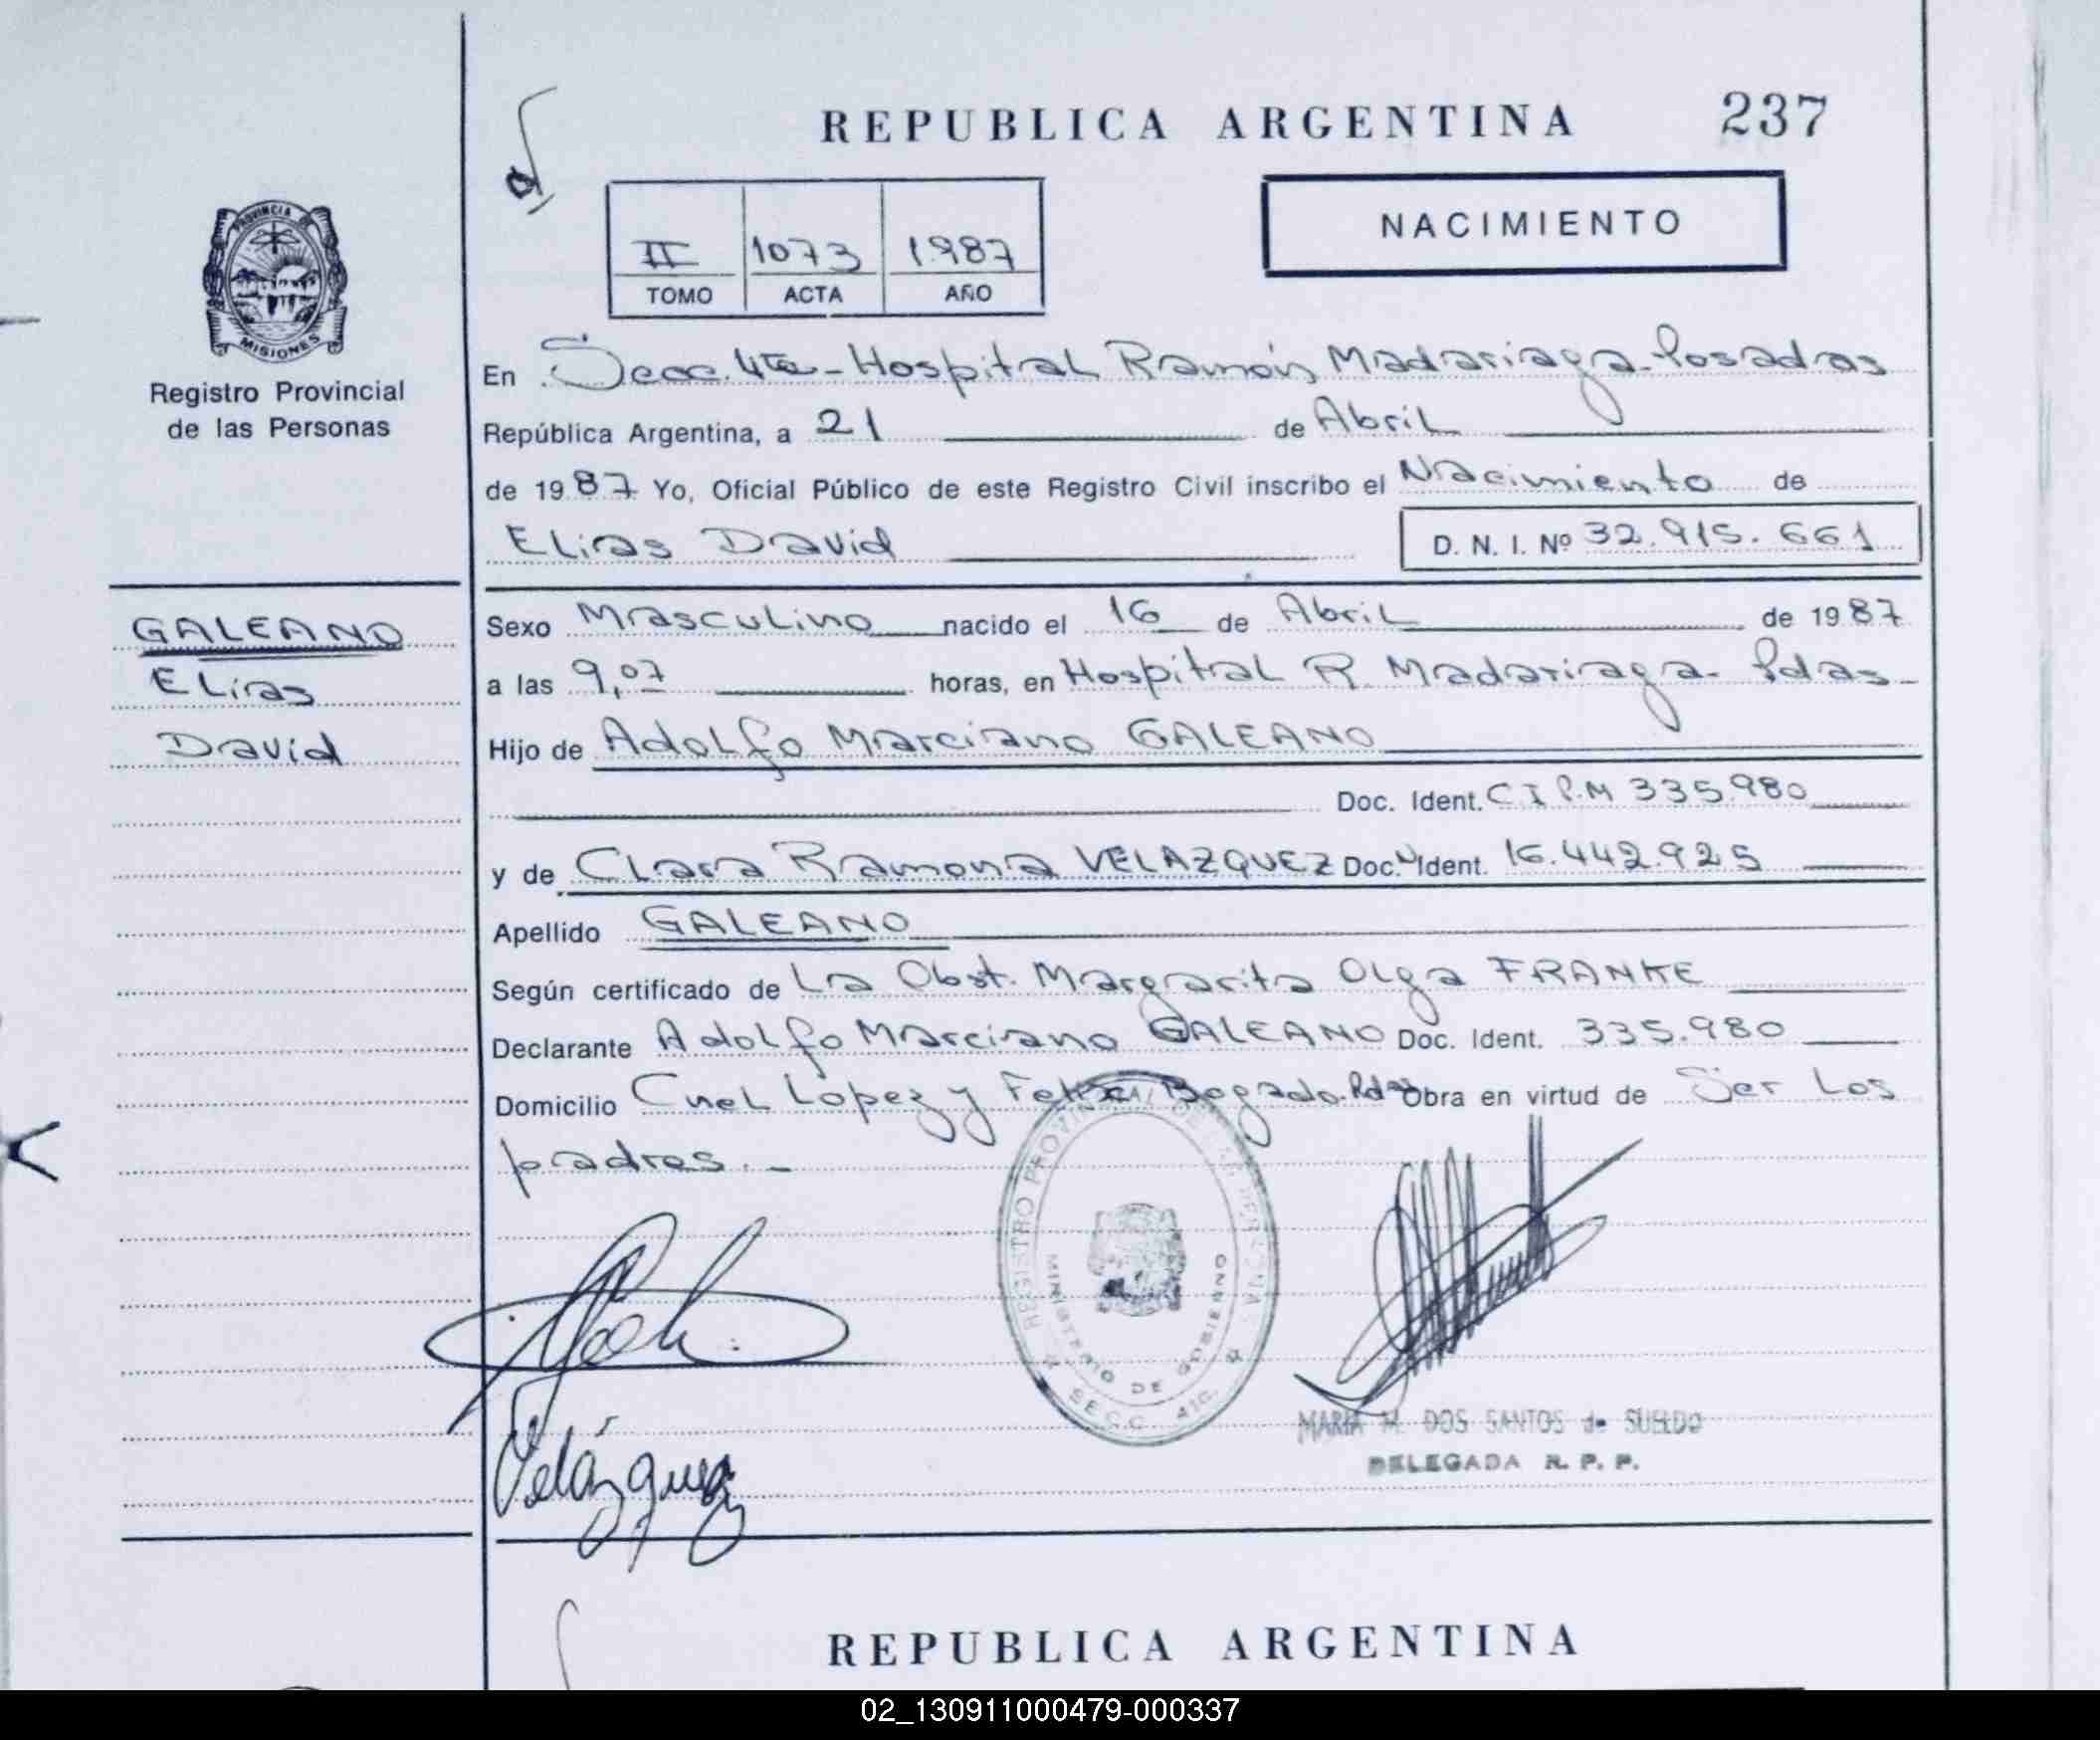 REPUBLICA ARGENTINA 237
NACIMIENTO
II 1073 1987
TOMO ACTA AÑO
PROVINCIA DE
MISIONES
Registro Provincial
de las Personas
En Secc. 4ta - Hospital Ramón Madariaga - Posadas
República Argentina, a 21 de Abril
de 1987 Yo, Oficial Público de este Registro Civil inscribo el Nacimiento de
Elias David D. N. I. Nº 32.915.661
GALEANO
Elías
David
Sexo Masculino nacido el 16 de Abril de 1987
a las 9,07 horas, en Hospital R. Madariaga - Pdas -
Hijo de Adolfo Marciano GALEANO
Doc. Ident. C I P.M 335.980
y de Clara Ramona VELAZQUEZ Doc. Ident. 16.442.925
Apellido GALEANO
Según certificado de La Obst. Margarita Olga FRANKE
Declarante Adolfo Marciano GALEANO Doc. Ident. 335.980
Domicilio Cnel Lopez y Felix Bogado. Pdas Obra en virtud de Ser Los
padres. -
REGISTRO PROVINCIAL DE LAS PERSONAS
MINISTERIO DE GOBIERNO
SECC. 4ta
Velázquez
MARIA M. DOS SANTOS de SUELDO
DELEGADA R. P. P.
REPUBLICA ARGENTINA
02_130911000479-000337